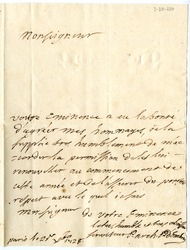 Monseigneur
votre Eminence a eu la bonté
d'agréer mes hommages je la
supplie tres humblement de m'ac-
corder la permission de les lui
renouveller au commencement de
cette année et de l'assurer du profond
respect avec le quel je suis
monseigneur
de Votre Eminence
paris le 27